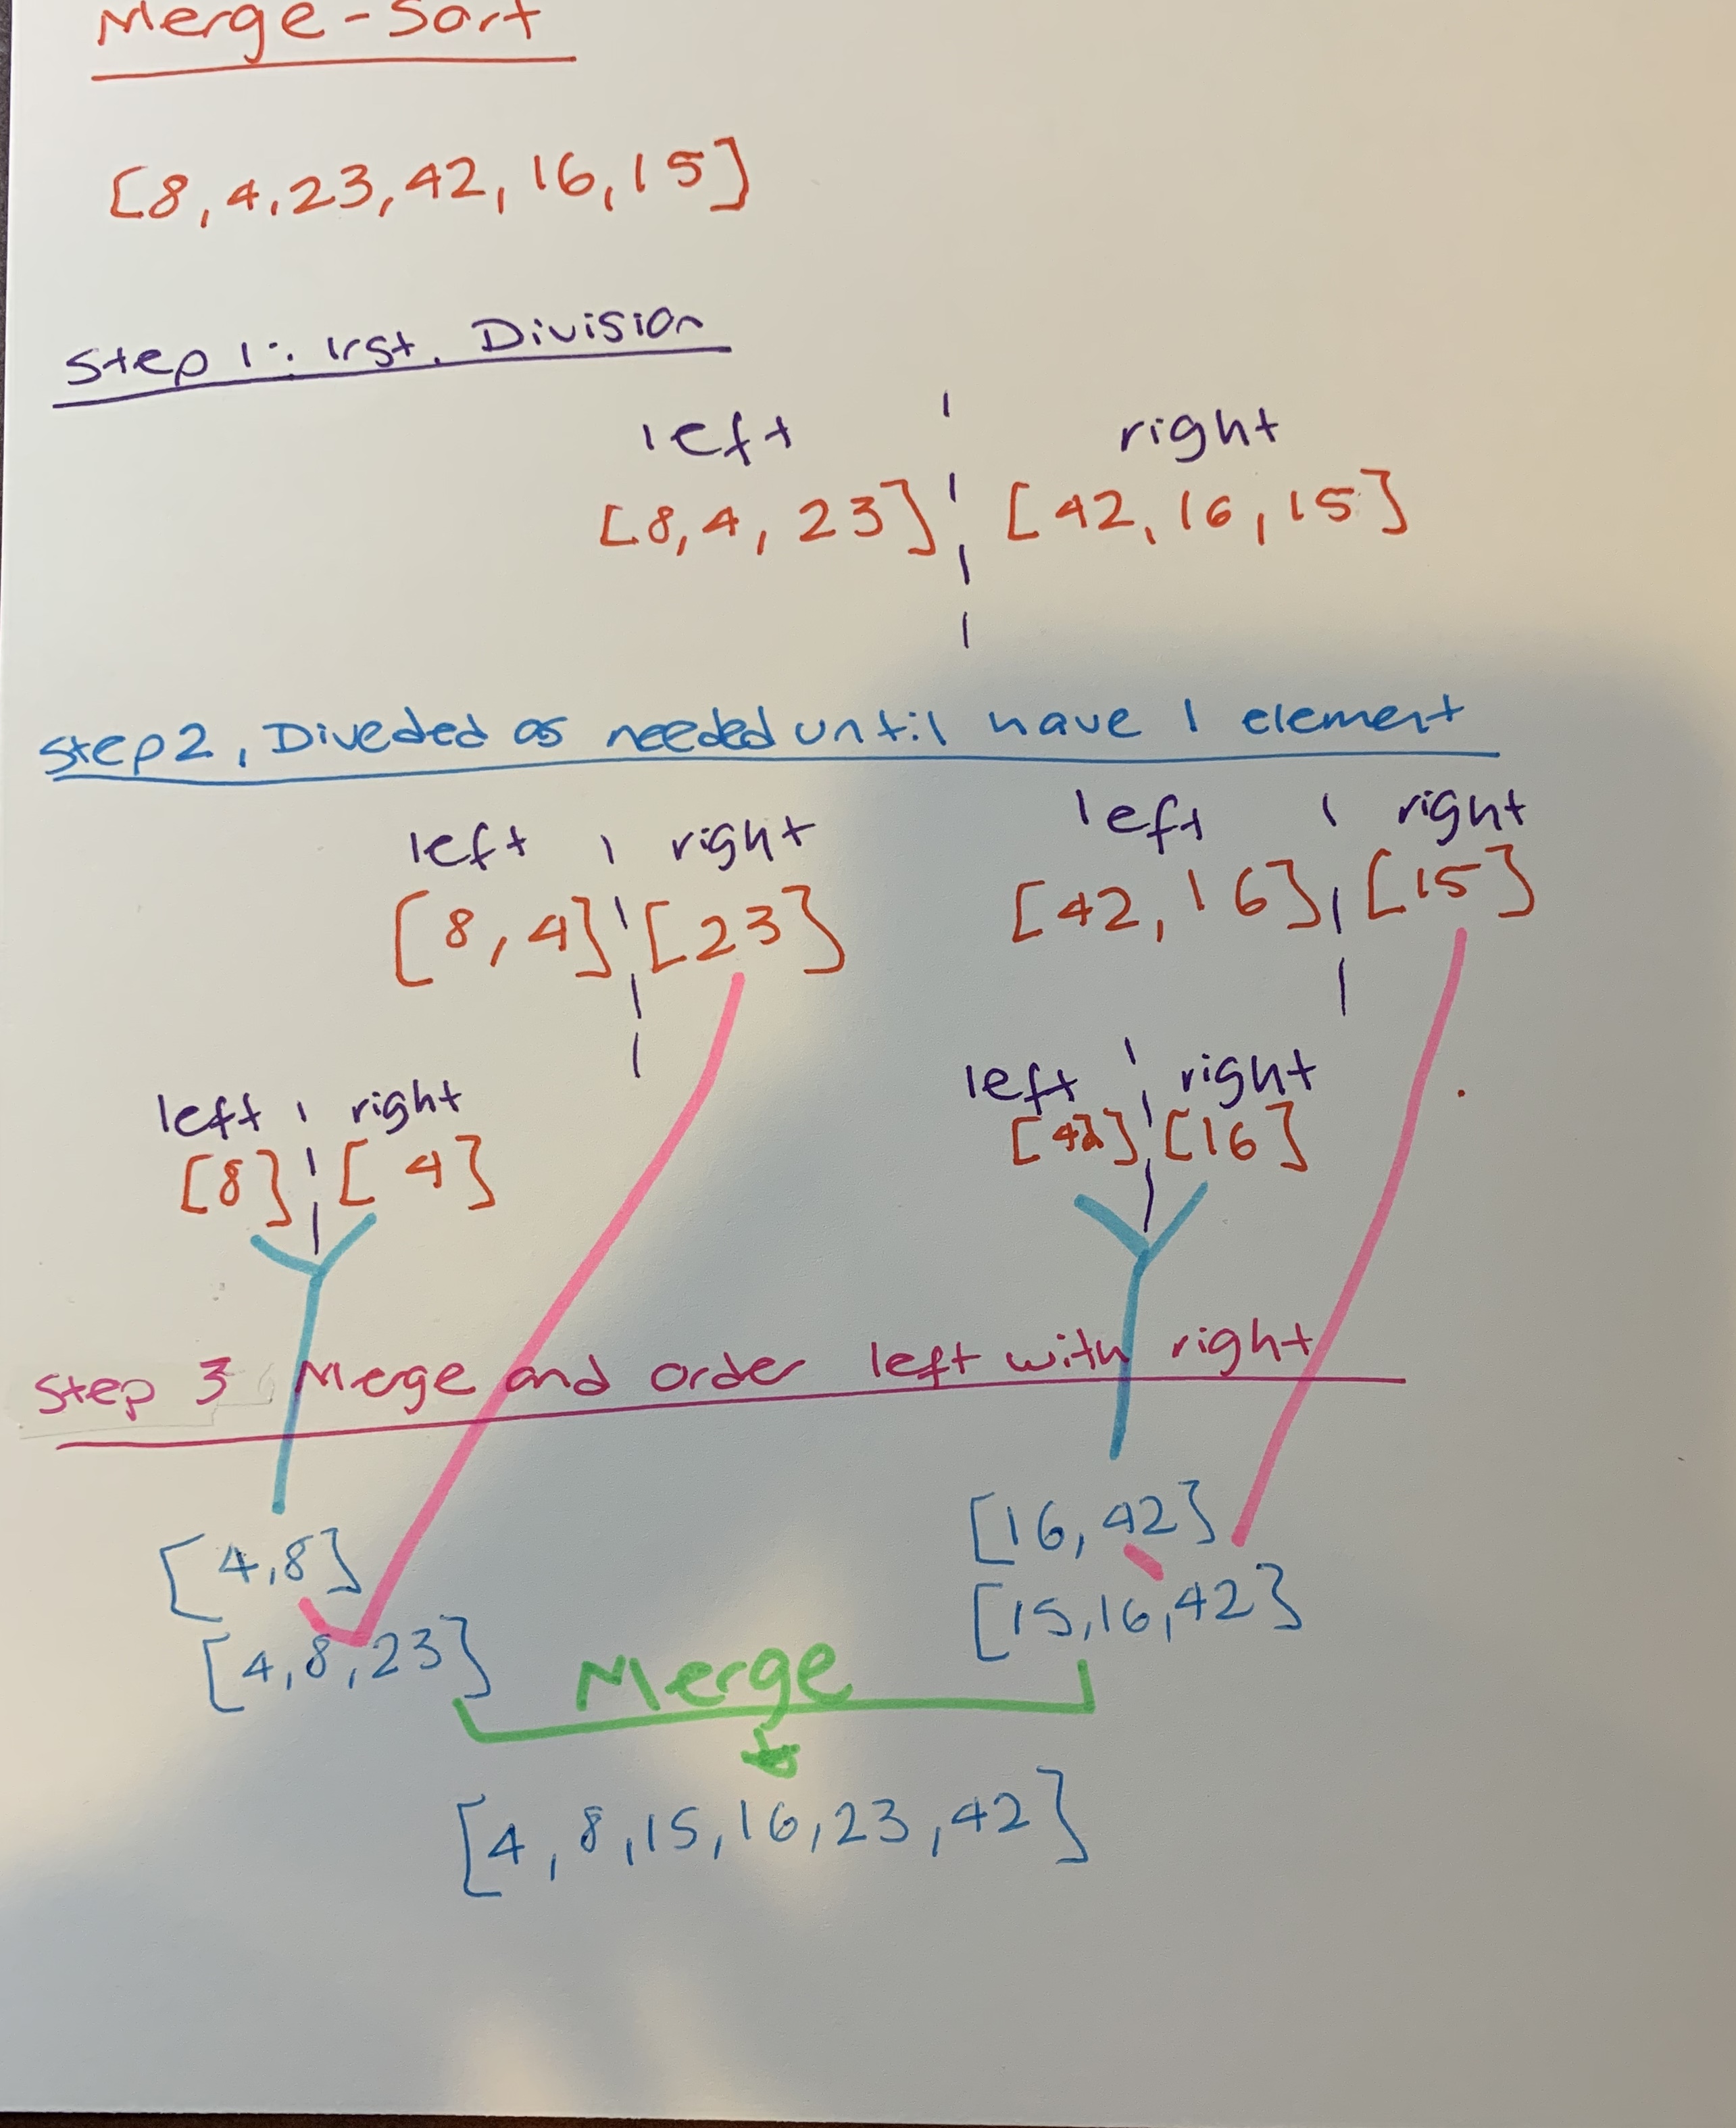 Merge-Sort
[8,4,23,42,16,15]
Step 1: 1rst. Division
left right
[8,4,23] [42,16,15]
Step2, Diveded as needed until have 1 element
left right left right
[8,4] [23] [42,16] [15]
left right left right
[8] [4] [42] [16]
Step 3 Merge and order left with right
[4,8] [16,42]
[4,8,23] [15,16,42]
Merge
[4,8,15,16,23,42]